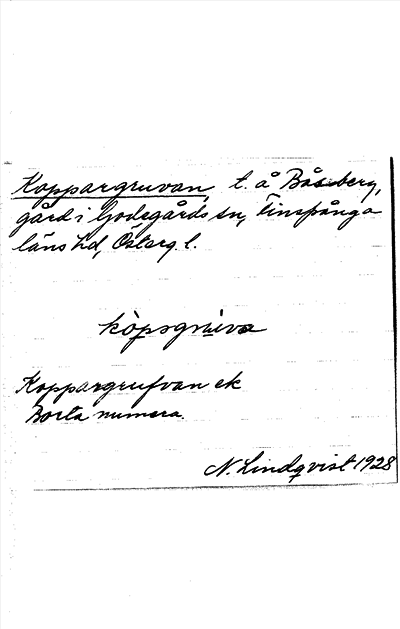 Koppargruvan, t. å Båsberg,
gård i Godegårds sn, Finspånga
läns hd, Österg. l.
Koppargrufvan ek
Borta numera.
N. Lindqvist 1928